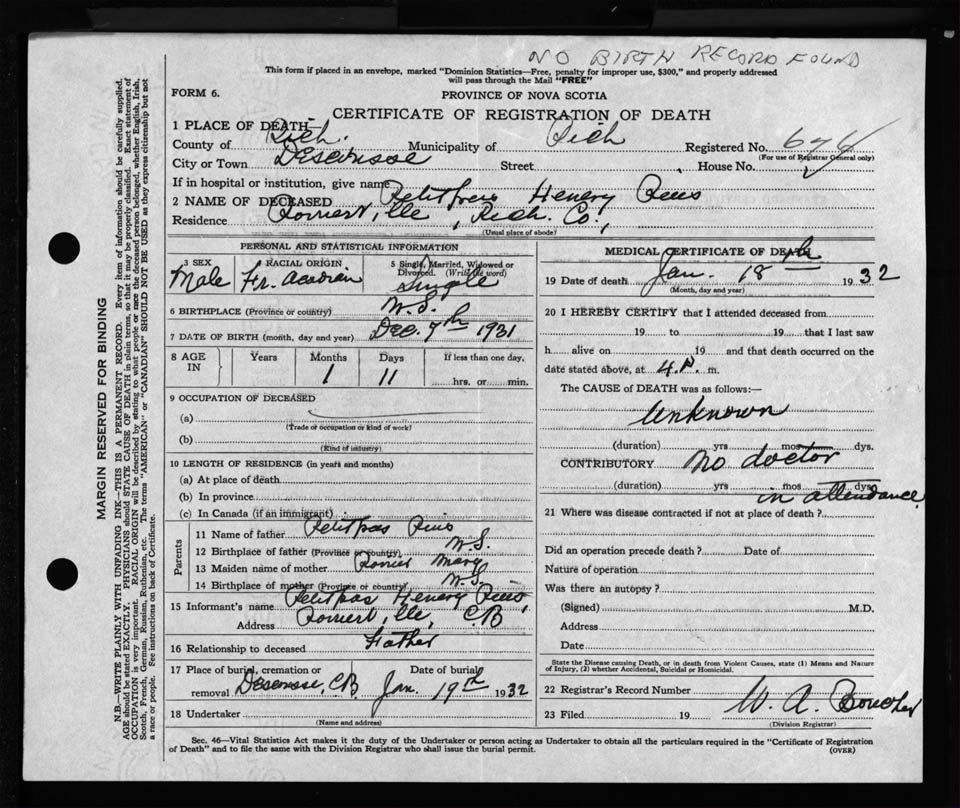 NO BIRTH RECORD FOUND
This form if placed in an envelope, marked "Dominion Statistics—Free, penalty for improper use, $300," and properly addressed
will pass through the Mail "FREE"
FORM 6.
PROVINCE OF NOVA SCOTIA
CERTIFICATE OF REGISTRATION OF DEATH
1 PLACE OF DEATH—
County of Rich. Municipality of Rich Registered No. 674
(For use of Registrar General only)
City or Town Descousse Street House No.
If in hospital or institution, give name
2 NAME OF DECEASED Petitpas Henery Pius
Residence Poirierville, Rich. Co.,
(Usual place of abode)
PERSONAL AND STATISTICAL INFORMATION
3 SEX RACIAL ORIGIN 5 Single, Married, Widowed or
Divorced. (Write the word)
Male Fr. Acadian Single
6 BIRTHPLACE (Province or country) N.S.
7 DATE OF BIRTH (month, day and year) Dec. 7th 1931
8 AGE IN Years Months Days If less than one day,
1 11 hrs. or min.
9 OCCUPATION OF DECEASED
(a)
(Trade or occupation or kind of work)
(b)
(Kind of industry)
10 LENGTH OF RESIDENCE (in years and months)
(a) At place of death
(b) In province
(c) In Canada (if an immigrant)
Parents
11 Name of father Petitpas Pius
12 Birthplace of father (Province or country) N.S.
13 Maiden name of mother Poirier Mary
14 Birthplace of mother (Province or country) N.S.
15 Informant's name Petitpas Henery Pius,
Address Poirierville, CB
16 Relationship to deceased Father
17 Place of burial, cremation or Date of burial
removal Descousse, CB Jan. 19th 1932
18 Undertaker
(Name and address)
MEDICAL CERTIFICATE OF DEATH
19 Date of death Jan. 18th 1932
(Month, day and year)
20 I HEREBY CERTIFY that I attended deceased from
19 to 19 that I last saw
h alive on 19 and that death occurred on the
date stated above, at 4 P. m.
The CAUSE of DEATH was as follows:—
Unknown
(duration) yrs mos dys.
CONTRIBUTORY No doctor
(duration) yrs mos dys
in attendance
21 Where was disease contracted if not at place of death?
Did an operation precede death? Date of
Nature of operation
Was there an autopsy?
(Signed) M.D.
Address
Date
State the Disease causing Death, or in death from Violent Causes, state (1) Means and Nature
of Injury, (2) whether Accidental, Suicidal or Homicidal.
22 Registrar's Record Number
23 Filed 19 W. A. Boucher
(Division Registrar)
Sec. 46—Vital Statistics Act makes it the duty of the Undertaker or person acting as Undertaker to obtain all the particulars required in the "Certificate of Registration
of Death" and to file the same with the Division Registrar who shall issue the burial permit.
(OVER)
MARGIN RESERVED FOR BINDING
N.B.—WRITE PLAINLY WITH UNFADING INK—THIS IS A PERMANENT RECORD. Every item of information should be carefully supplied.
AGE should be stated EXACTLY. PHYSICIANS should STATE CAUSE OF DEATH in plain terms, so that it may be properly classified. Exact statement of
OCCUPATION is very important. RACIAL ORIGIN will be described by stating to what people or race the deceased person belonged, whether English, Irish,
Scotch, French, German, Russian, Ruthenian, etc. The terms "AMERICAN" or "CANADIAN" SHOULD NOT BE USED as they express citizenship but not
a race or people. See instructions on back of Certificate.